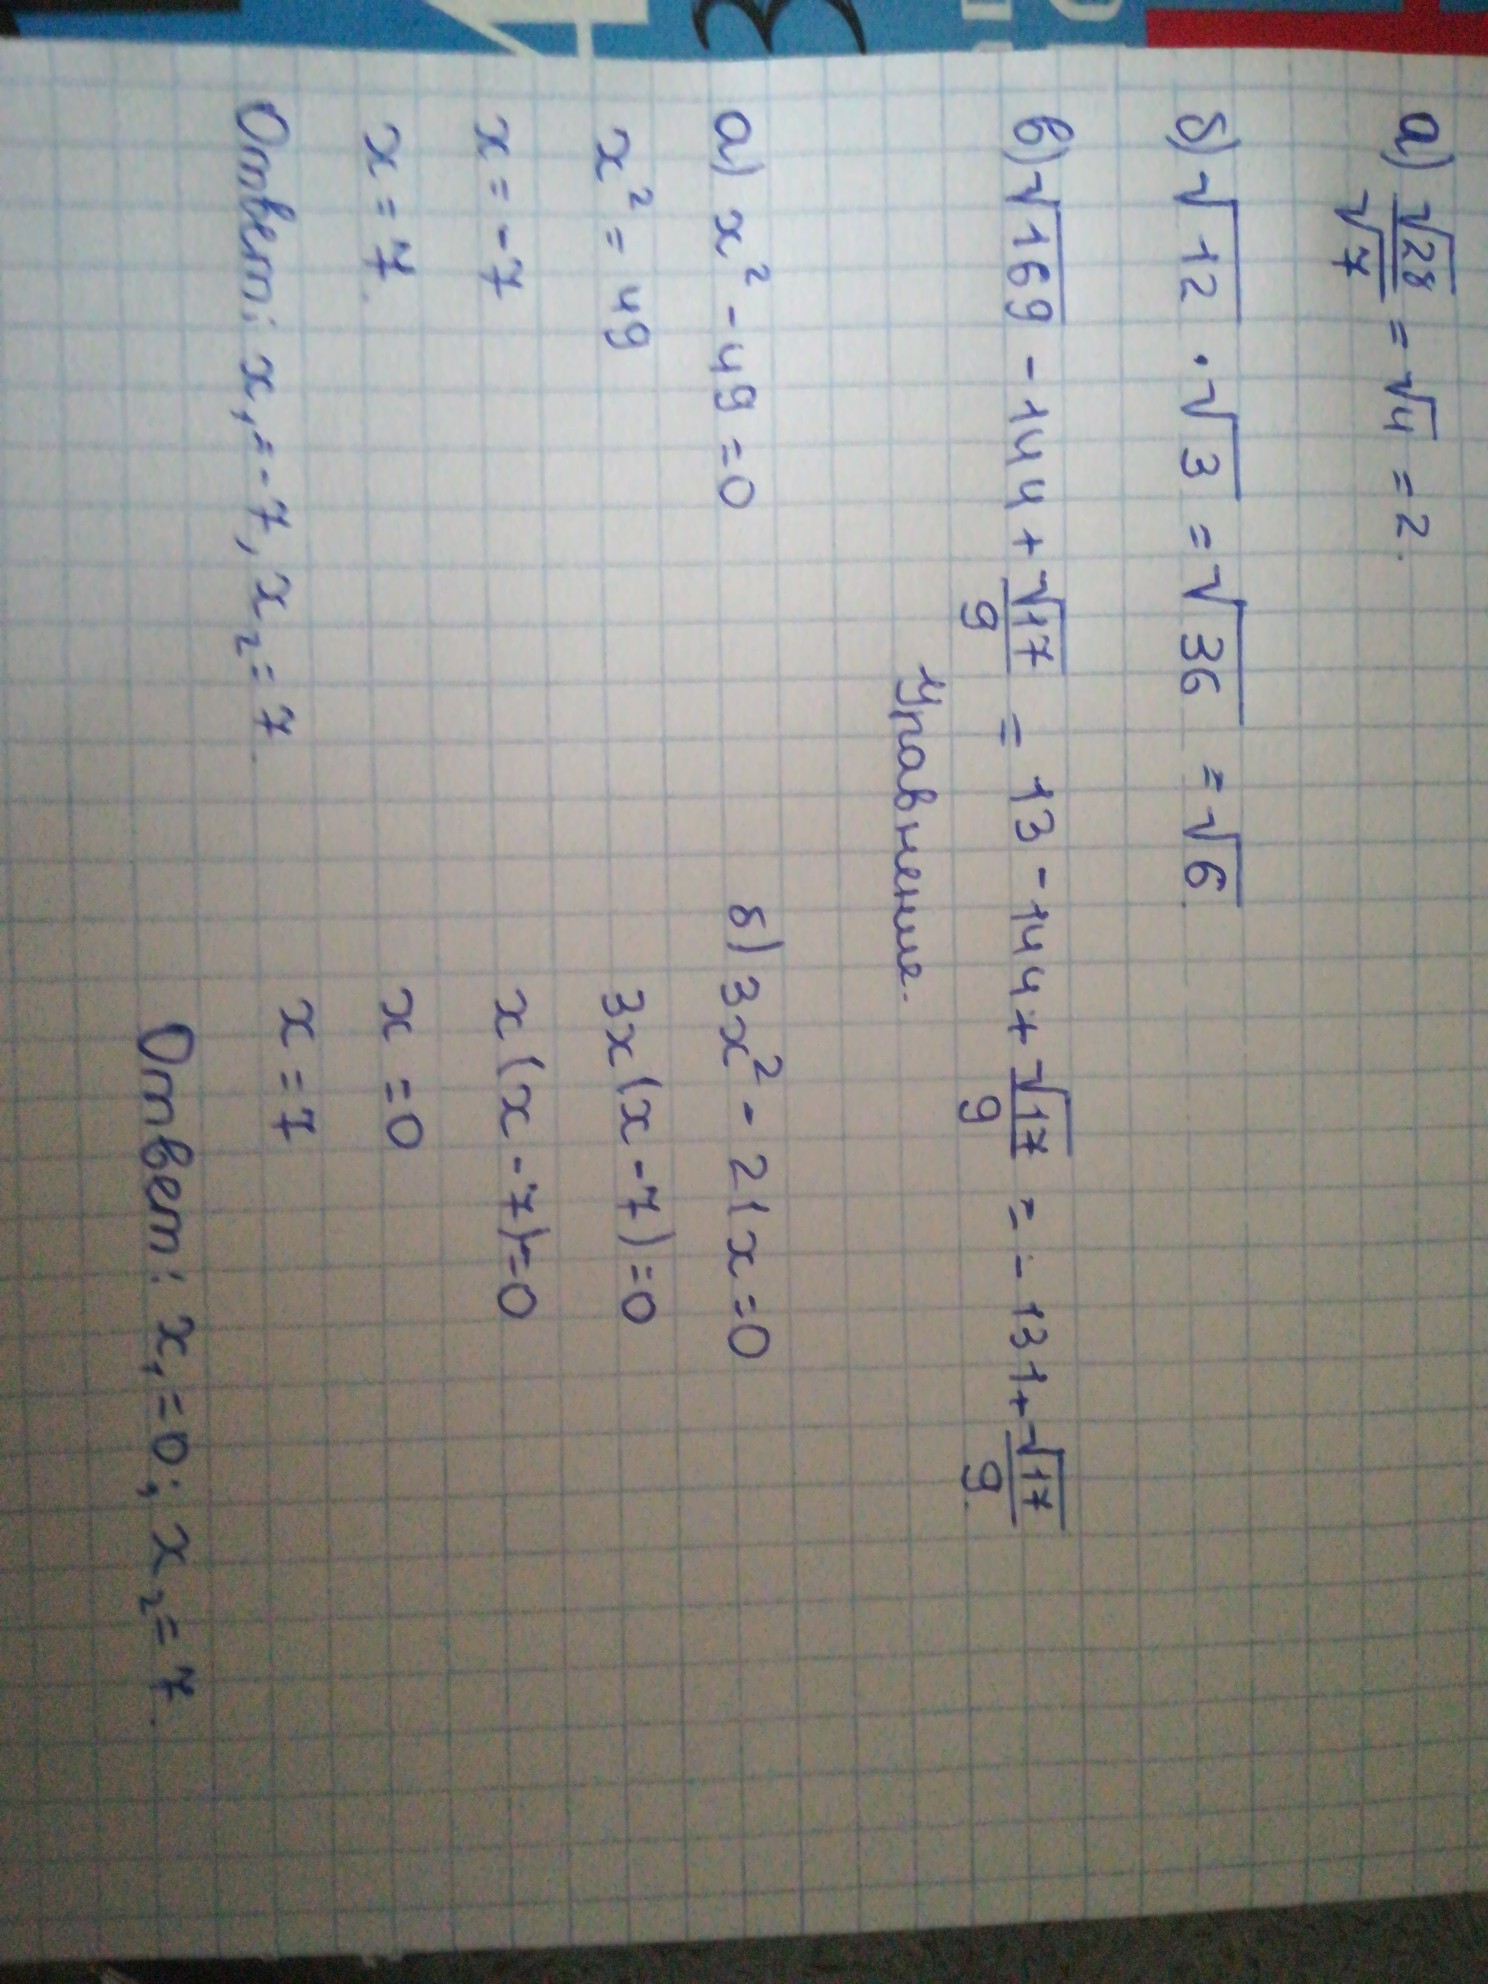 а) √28/√7 = √4 = 2.
б) √12 · √3 = √36 = √6.
в) √169 - 144 + √17/9 = 13 - 144 + √17/9 = - 131 + √17/9.
Уравнение.
а) x² - 49 = 0
x² = 49
x = -7
x = 7.
Ответ: x₁ = -7, x₂ = 7.
б) 3x² - 21x = 0
3x(x - 7) = 0
x(x - 7) = 0
x = 0
x = 7
Ответ: x₁ = 0; x₂ = 7.